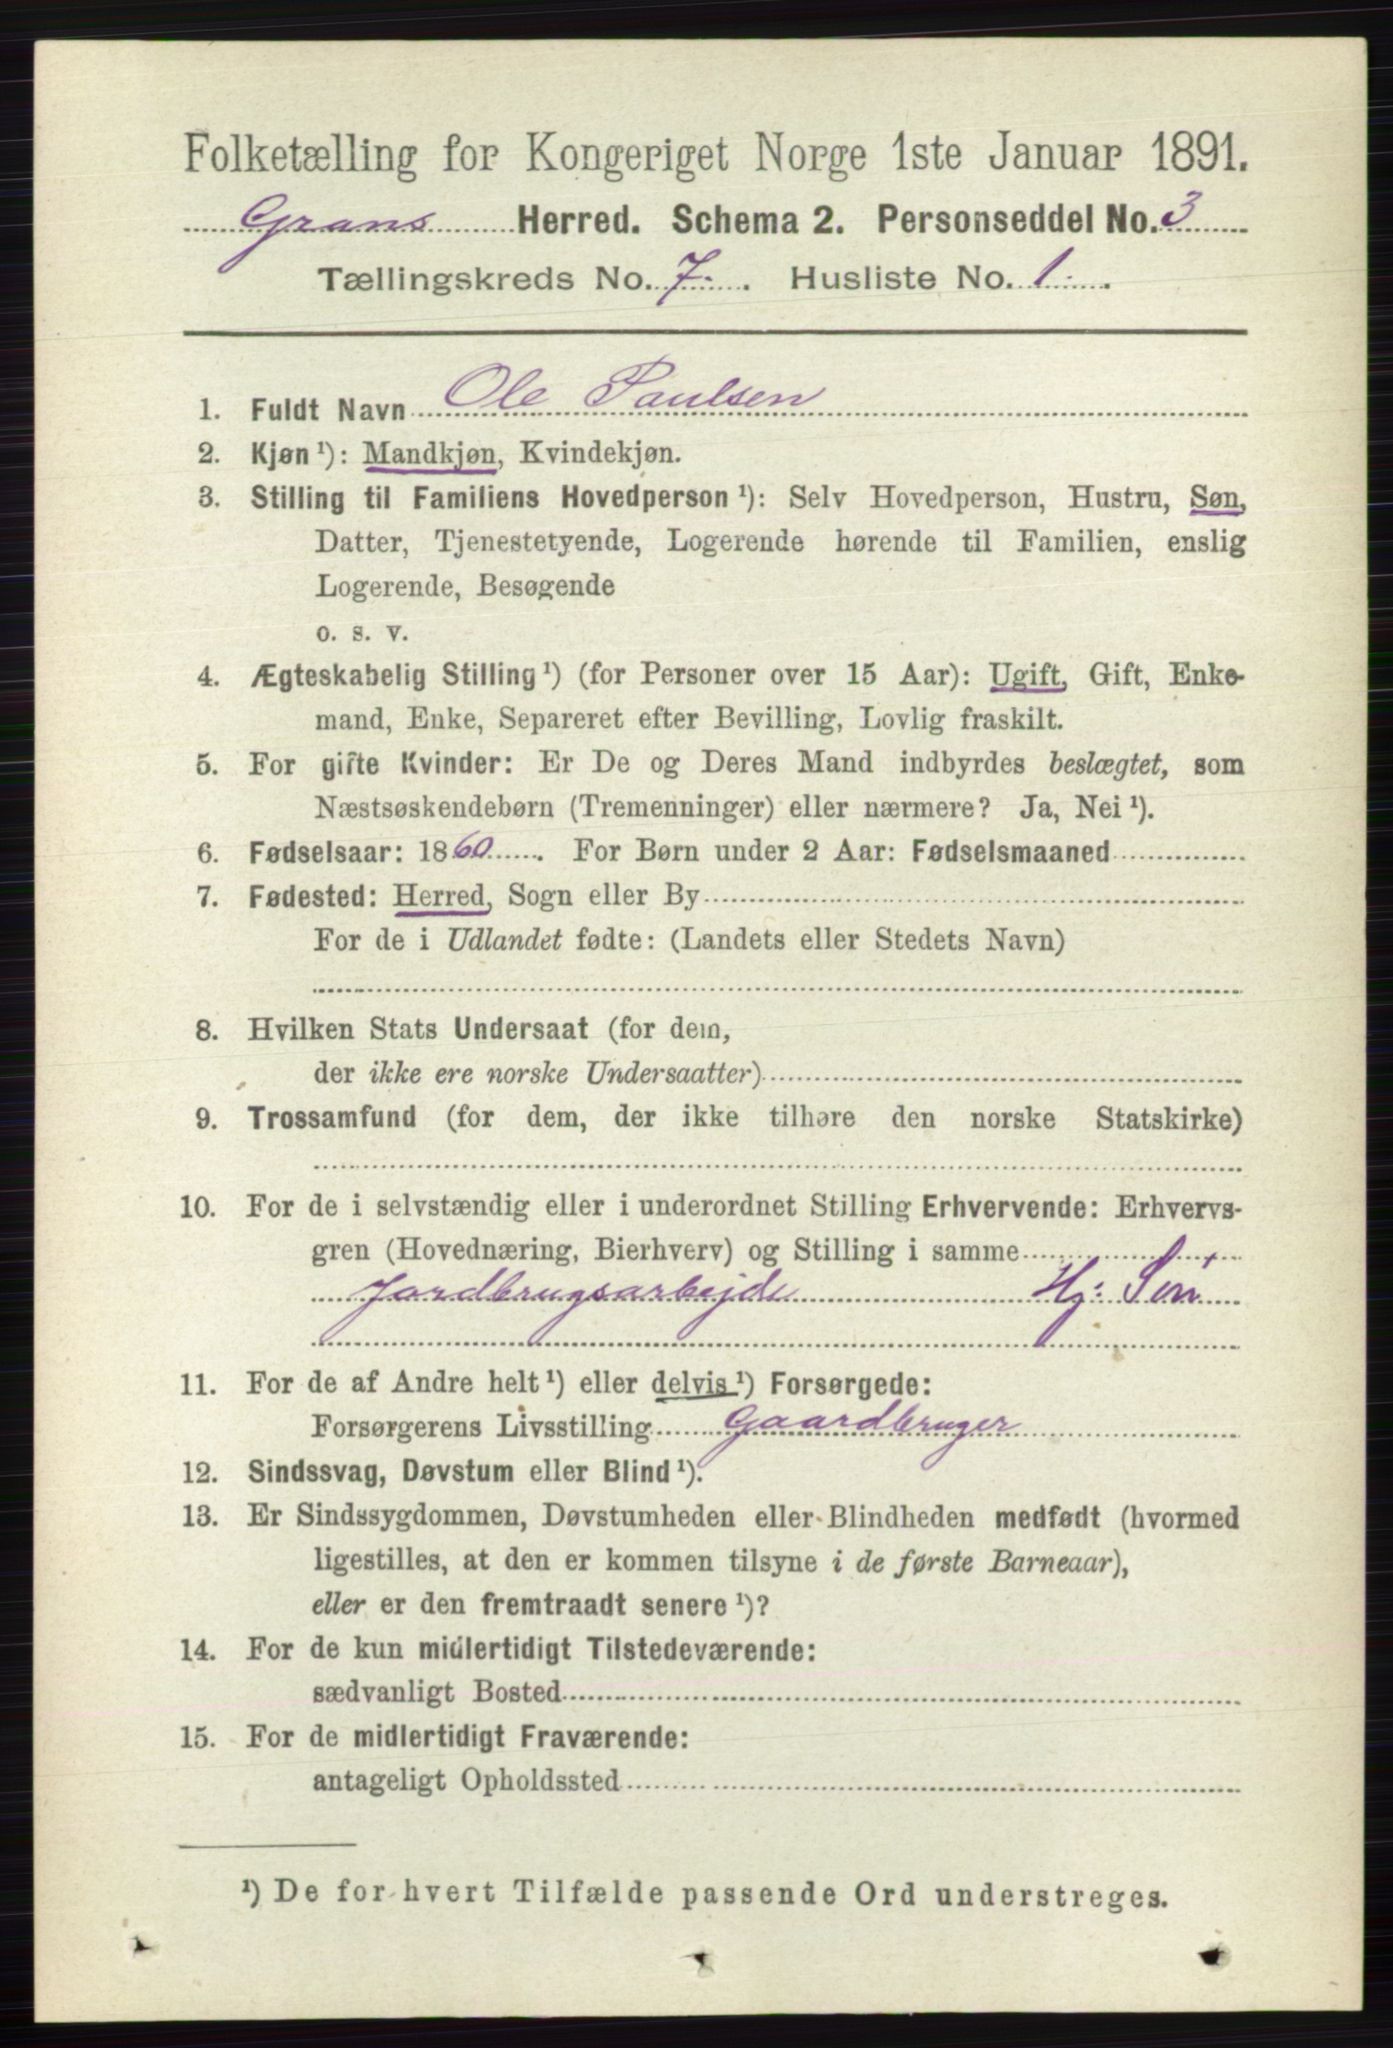 Folketælling for Kongeriget Norge 1ste Januar 1891.
Grans Herred. Schema 2. Personseddel No. 3
Tællingskreds No. 7. Husliste No. 1.
1. Fuldt Navn Ole Paulsen
2. Kjøn ¹): Mandkjøn, Kvindekjøn.
3. Stilling til Familiens Hovedperson ¹): Selv Hovedperson, Hustru, Søn,
Datter, Tjenestetyende, Logerende hørende til Familien, enslig
Logerende, Besøgende
o. s. v.
4. Ægteskabelig Stilling ¹) (for Personer over 15 Aar): Ugift, Gift, Enke-
mand, Enke, Separeret efter Bevilling, Lovlig fraskilt.
5. For gifte Kvinder: Er De og Deres Mand indbyrdes beslægtet, som
Næstsøskendebørn (Tremenninger) eller nærmere? Ja, Nei ¹).
6. Fødselsaar: 1860. For Børn under 2 Aar: Fødselsmaaned
7. Fødested: Herred, Sogn eller By
For de i Udlandet fødte: (Landets eller Stedets Navn)
8. Hvilken Stats Undersaat (for dem,
der ikke ere norske Undersaatter)
9. Trossamfund (for dem, der ikke tilhøre den norske Statskirke)
10. For de i selvstændig eller i underordnet Stilling Erhvervende: Erhvervs-
gren (Hovednæring, Bierhverv) og Stilling i samme
Jordbrugsarbejde Hj: Søn
11. For de af Andre helt ¹) eller delvis ¹) Forsørgede:
Forsørgerens Livsstilling Gaardbruger
12. Sindssvag, Døvstum eller Blind ¹).
13. Er Sindssygdommen, Døvstumheden eller Blindheden medfødt (hvormed
ligestilles, at den er kommen tilsyne i de første Barneaar),
eller er den fremtraadt senere ¹)?
14. For de kun midlertidigt Tilstedeværende:
sædvanligt Bosted
15. For de midlertidigt Fraværende:
antageligt Opholdssted
¹) De for hvert Tilfælde passende Ord understreges.